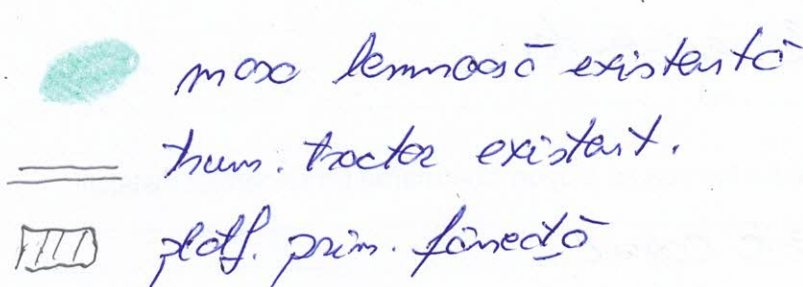 masa lemnoasă existentă
drum. tractor existent.
platf. prim. fâneață